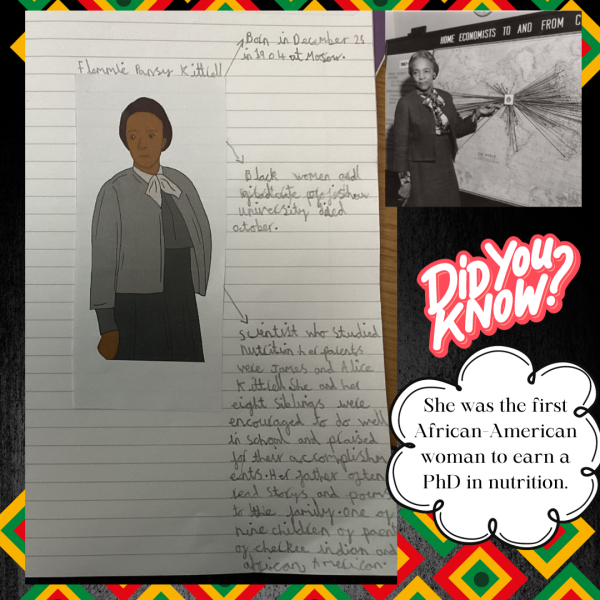 Flemmie Pansy Kittrell
Born in December 25
in 1904 at
Black women and
university died
october.
scientist who studied
nutrition her parents
were James and Alice
Kittrell She and her
eight siblings were
encouraged to do well
in school and praised
for their accomplishm
ents. Her father often
read storys and poems
to the family. One of
nine children of paren
of indian and
african American.
HOME ECONOMISTS TO AND FROM
DID YOU KNOW?
She was the first
African-American
woman to earn a
PhD in nutrition.